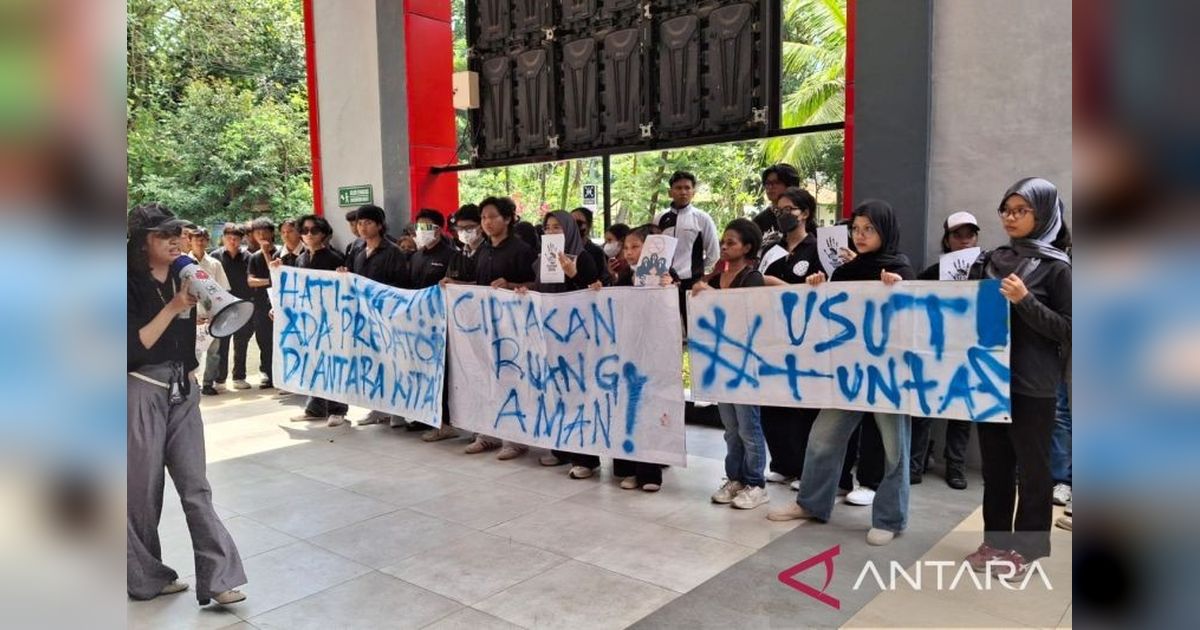 HATI-HATI!!!
ADA PREDATOR
DI ANTARA KITA!
CIPTAKAN
RUANG
AMAN!
#USUT
TUNTAS!
ANTARA